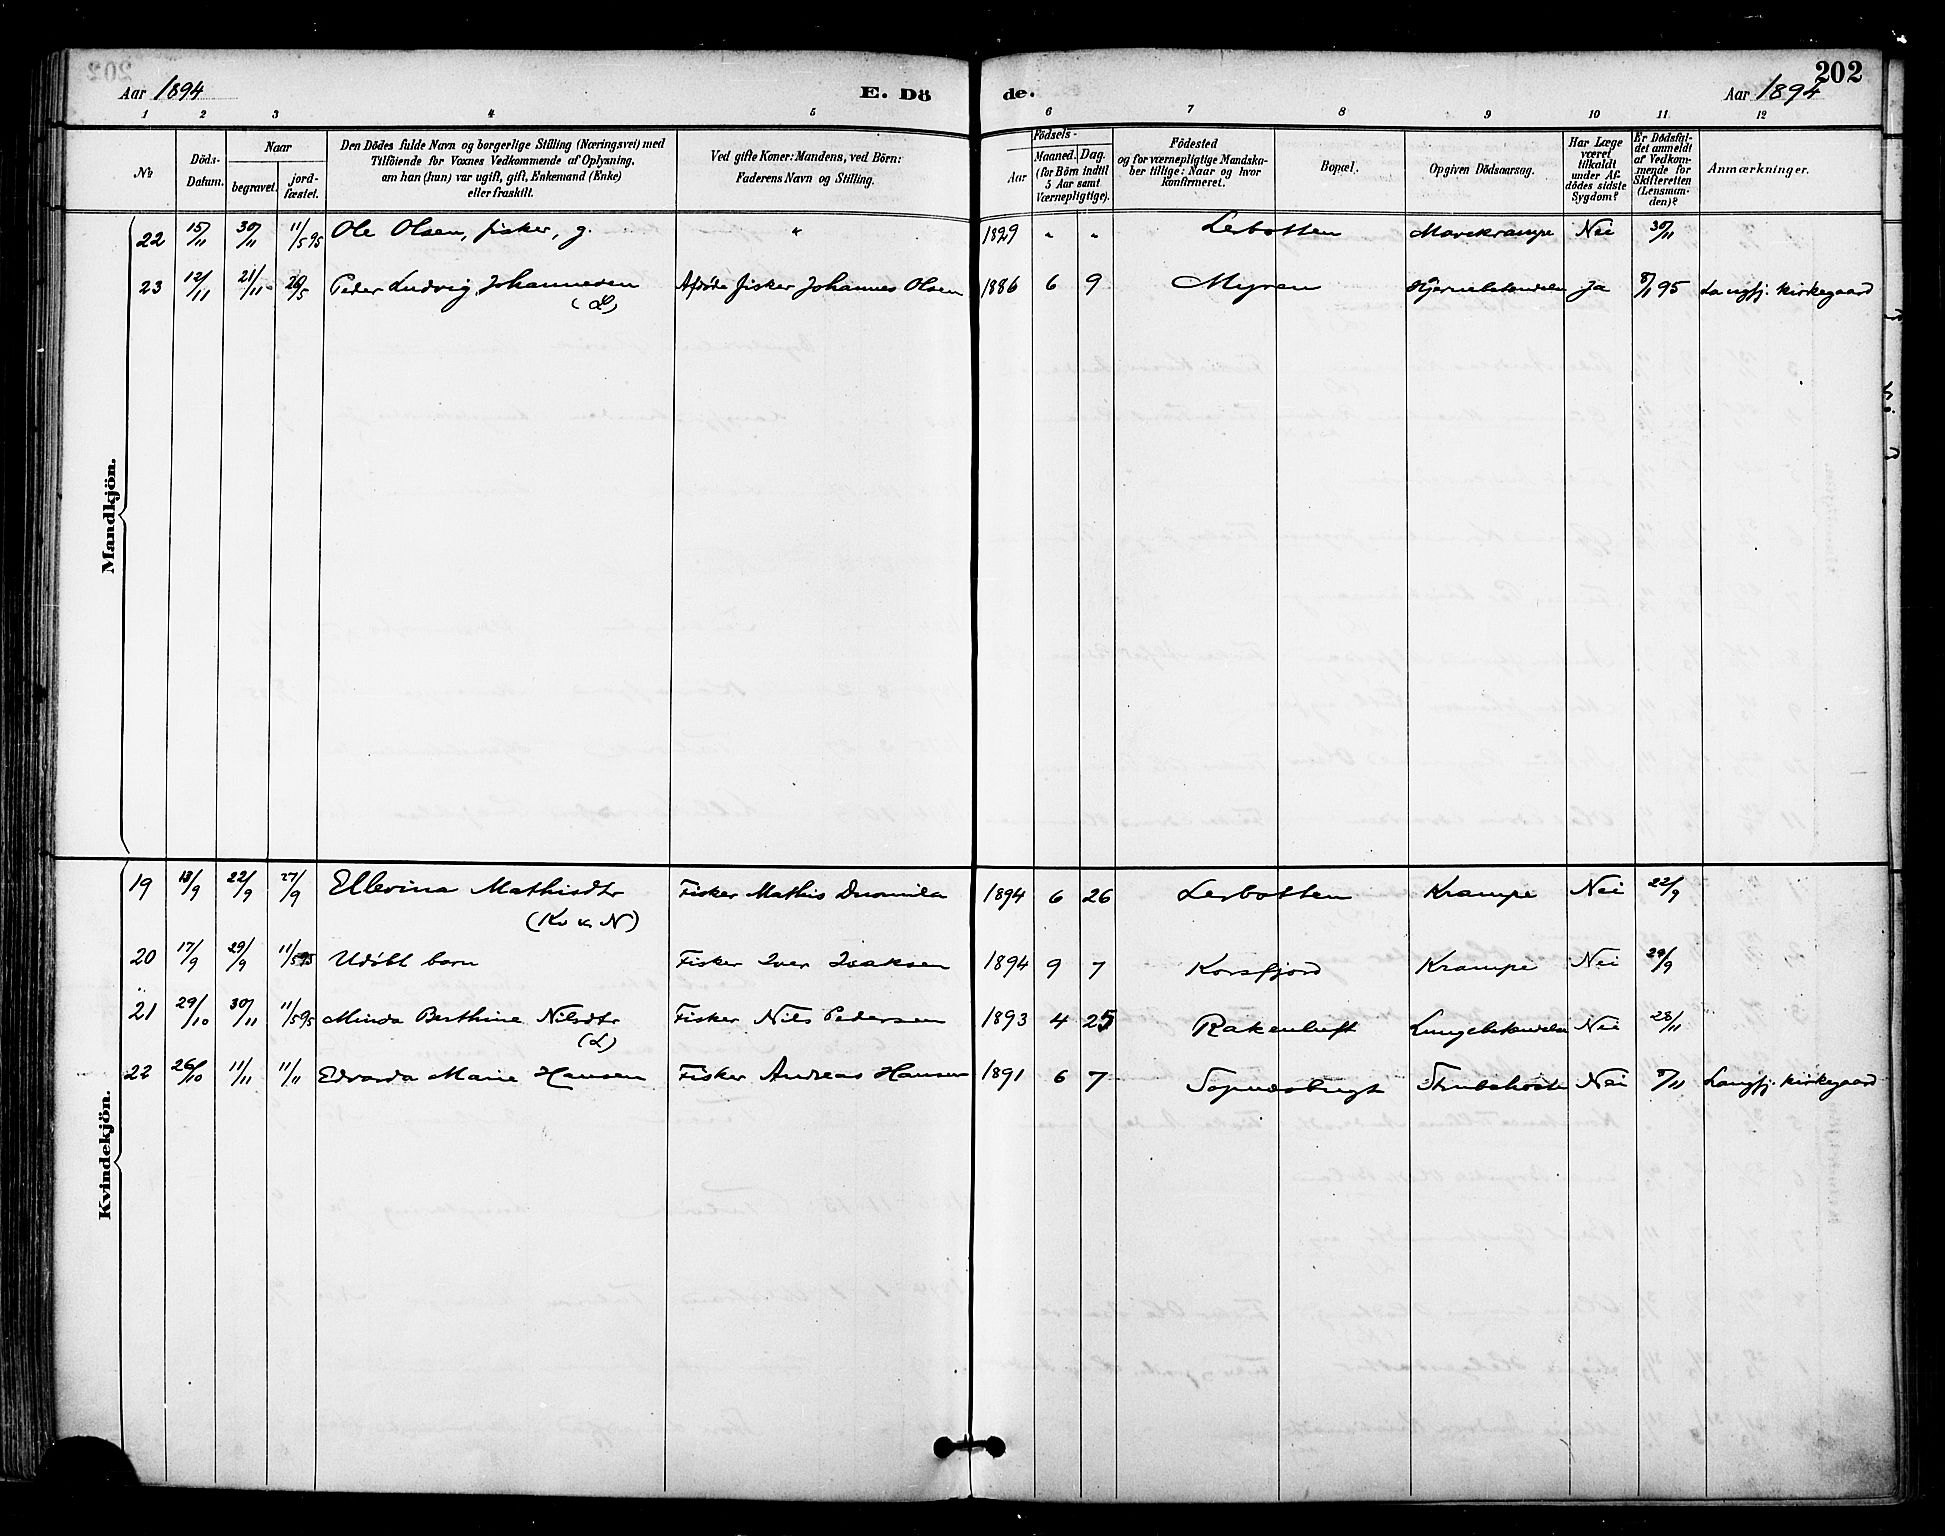 202
Aar 1894
E. Dö
de.
Aar 1894
1 2 3 4 5 6 7 8 9 10 11 12
No
Döds-
Datum.
Naar
begravet.
jord-
fæstet.
Den Dödes fulde Navn og borgerlige Stilling (Næringsvei) med
Tilföiende for Voxnes Vedkommende af Oplysning,
om han (hun) var ugift, gift, Enkemand (Enke)
eller fraskilt.
Ved gifte Koner: Mandens, ved Börn:
Faderens Navn og Stilling.
Födsels-
Aar
Maaned. Dag.
(for Börn indtil
5 Aar samt
Værnepligtige).
Födested
og for værnepligtige Mandska-
ber tillige: Naar og hvor
konfirmeret.
Bopæl.
Opgiven Dödsaarsag.
Har Læge
været
tilkaldt
under Af-
dödes sidste
Sygdom?
Er Dödsfal-
det anmeldt
af Vedkom-
mende for
Skifteretten
(Lensman-
den)?
Anmærkninger.
Mandkjön.
22 15/11 30/11 11/5 95 Ole Olsen, fisker, g. " 1829 " " Lerbotten Mavekrampe Nei 30/11
23 12/11 21/11 26/5 Peder Ludvig Johannesen Afdøde fisker Johannes Olsen 1886 6 9 Myren Hjernebetændelse Ja 8/1 95 Langfj. Kirkegaard
(L)
Kvindekjön.
19 18/9 22/9 27/9 Ellevina Mathisdtr Fisker Mathis 1894 6 26 Lerbotten Krampe Nei 22/9
(Kv v. N)
20 17/9 29/9 11/5 95 Udøbt barn Fisker Iver Isaksen 1894 9 7 Korsfjord Krampe Nei 29/9
21 29/10 30/11 11/5 95 Minda Berthine Nilsdtr Fisker Nils Pedersen 1893 4 25 Lungebetændelse Nei 28/11
(L)
22 26/10 11/11 11/11 Edvarda Marie Hansen Fisker Andreas Hansen 1891 6 7 Sopnesbugt Strubehoste Nei 8/11 Langfj. Kirkegaard